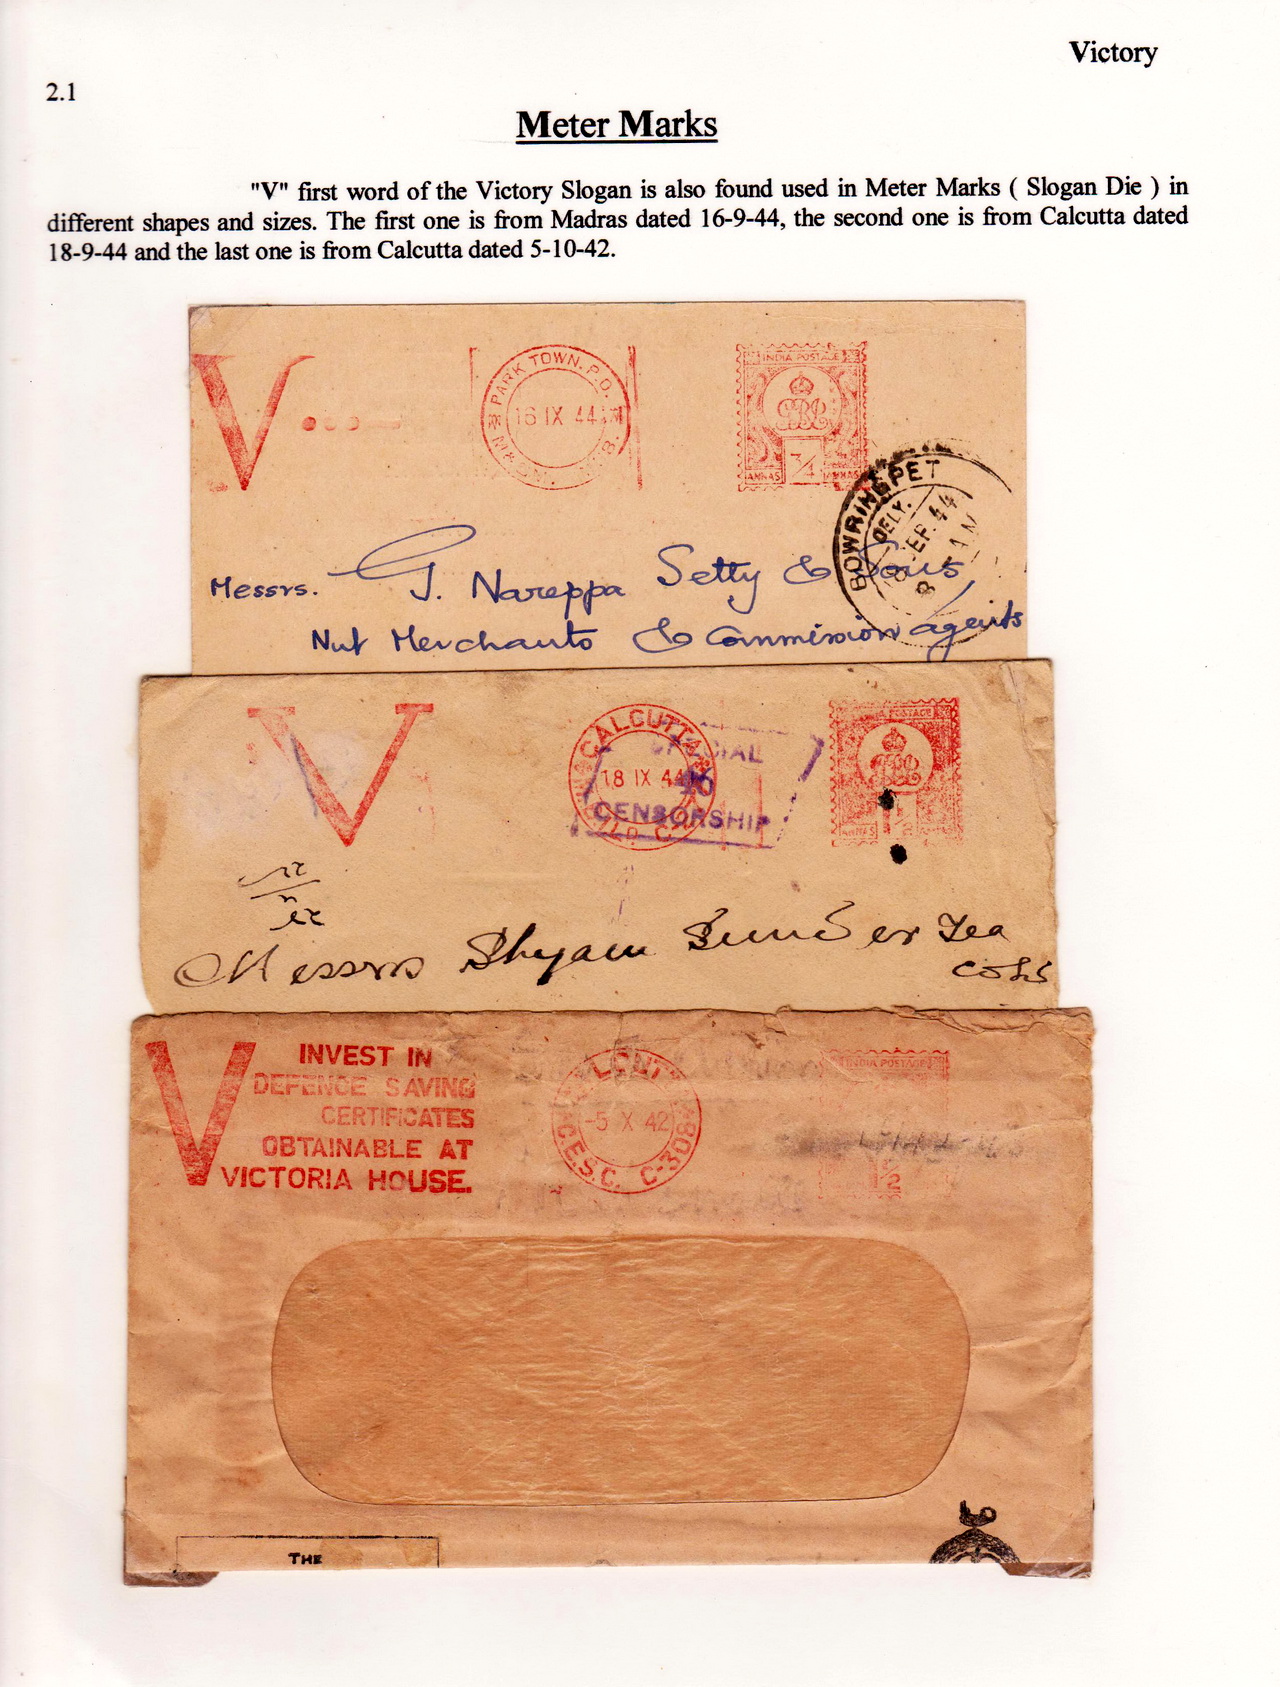 Victory
2.1
Meter Marks
"V" first word of the Victory Slogan is also found used in Meter Marks ( Slogan Die ) in
different shapes and sizes. The first one is from Madras dated 16-9-44, the second one is from Calcutta dated
18-9-44 and the last one is from Calcutta dated 5-10-42.
V
PARK TOWN. P.O.
16 IX 44
INDIA POSTAGE
3/4
ANNAS ANNAS
BOWRINGPET
DELY.
SEP. 44
8
Messrs. G. Nareppa Setty & Sons,
Nut Merchants & Commission Agents
V
CALCUTTA
18 IX 44
SPECIAL
46
CENSORSHIP
POSTAGE
ANNAS
Messrs Shyam Sunder Tea
V
INVEST IN
DEFENCE SAVING
CERTIFICATES
OBTAINABLE AT
VICTORIA HOUSE.
-5 X 42
C.E.S.C. C-308
INDIA POSTAGE
1/2
THE